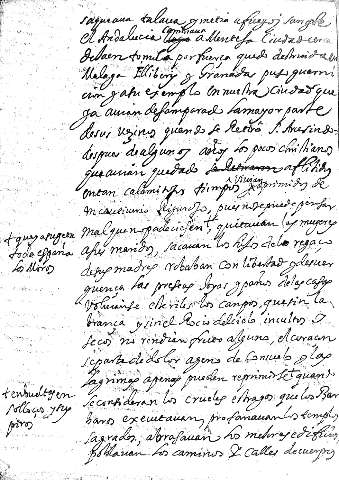 saqueaua talaua y metia a fuego y sangre
el Andalucia comarcana a Mentesa Ciudad cerca
de Jaen tomola por fuerça quedo destruida
Malaga Elliberi y Granada puso guarni
cion y a su exemplo en nuestra Ciudad que
ya auian desamparado la mayor parte
de sus vezinos quando se Retiró S.
despues de algunos años los pocos christianos
que auian quedado afligidos
en tan calamitoso tiempo viuian oprimidos de
pues no se puede pensar
mal que no padeciesen, quitauan las mugeres
a sus maridos, sacauan los hijos de el regaço
de sus madres robauan con libertad y desuer
guença las preseas oros y paños de las casas
voluianse esteriles los campos, que sin la
brança y sin el Rocio del cielo incultos y
secos no rendian fruto alguno, el coraçon
se parte de dolor ageno de consuelo y las
lagrimas apenas pueden reprimirse quando
se consideran los crueles estragos que los Bar
baros executauan, profanauan los templos
sagrados, abrasauan los mejores edificios
poblauan los caminos y calles de cuerpos
+ que ya sugeta
toda españa
los Moros
+ embueltas en
sollozos y sus
piros